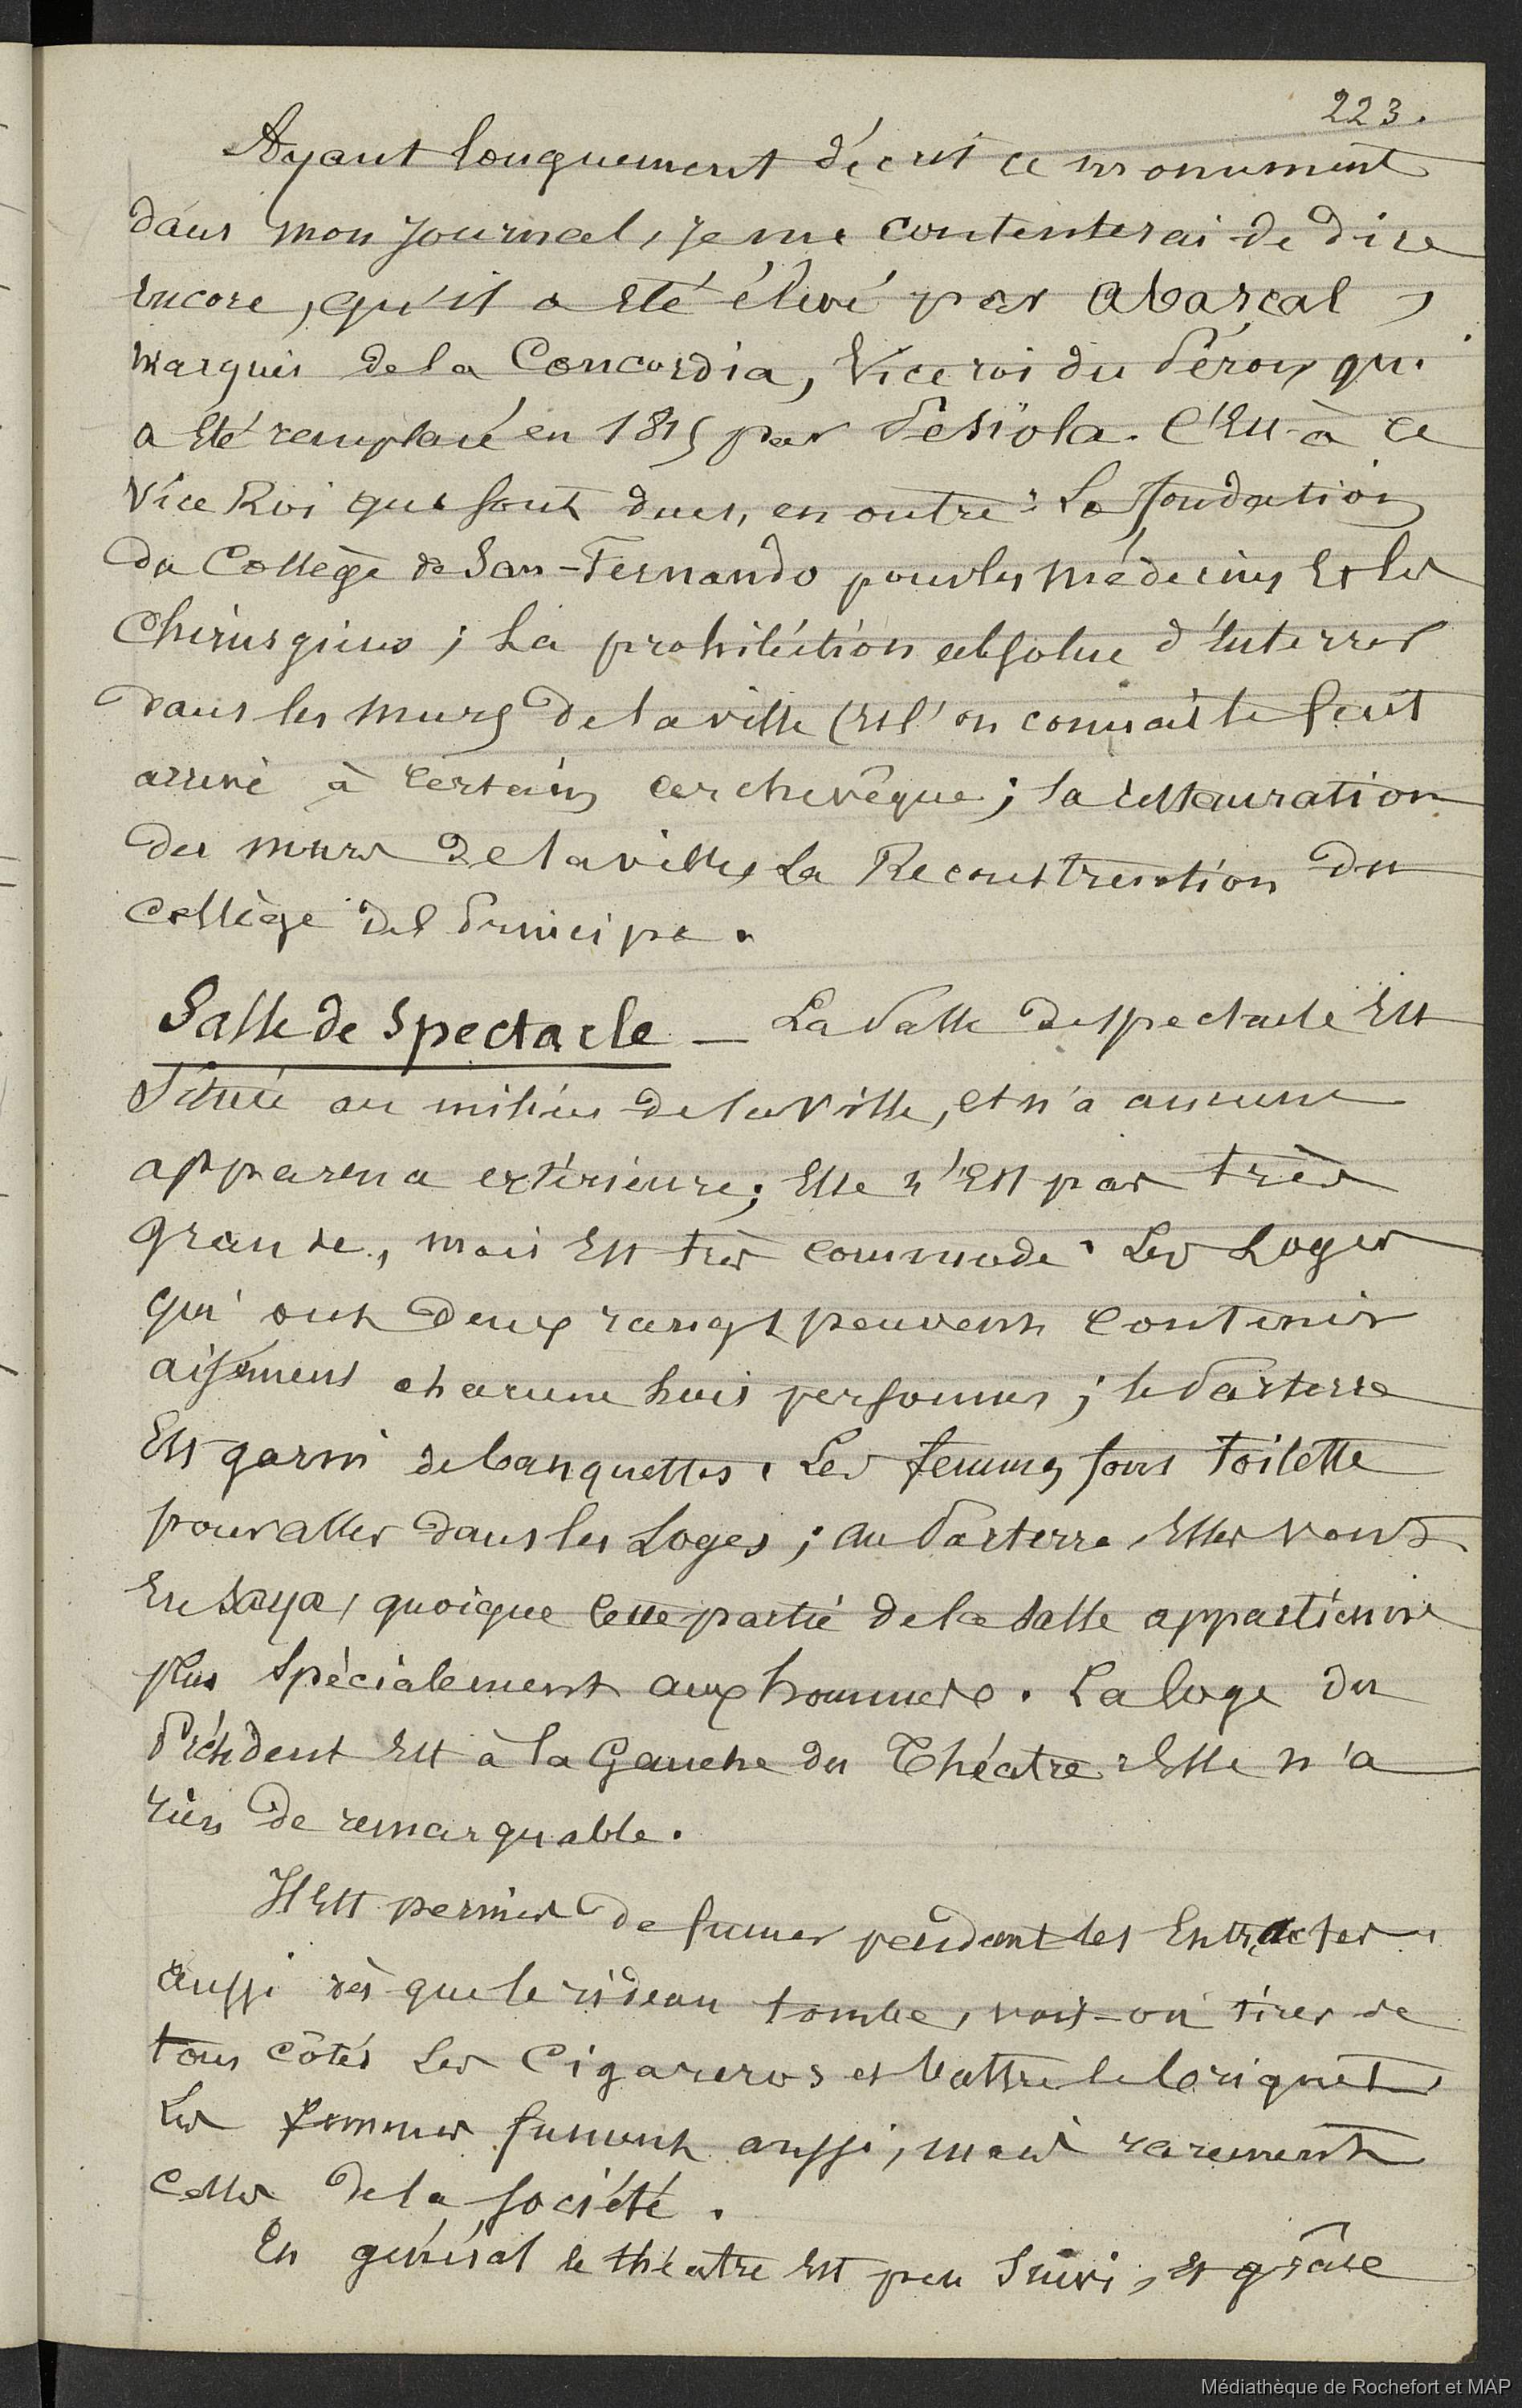 223.
Ayant longuement décrit ce monument
dans mon journal, je me contenterai de dire
encore, qu'il a été élevé par Abascal,
marquis de la Concordia, Vice roi du Pérou, qui
a été remplacé en 1815 par Pesiola. C'est à ce
Vice Roi que sont dues, en outre : La fondation
du Collège de San-Fernando pour les médecins et les
Chirurgiens ; La prohibition absolue d'enterrer
dans les murs de la ville (et l'on connait le fait
arrivé à certain archevêque ; la restauration
des murs de la ville, La Reconstruction du
Collège del Principe.
Salle de Spectacle — La Salle de spectacle est
Située au milieu de la Ville, et n'a aucune
apparence extérieure ; Elle n'est pas très
grande, mais est très commode. Les Loges
qui ont deux rangs peuvent contenir
aisément chacune huit personnes ; le Parterre
est garni de banquettes. Les femmes font toilette
pour aller dans les Loges ; au Parterre, Elles vont
En saya, quoique cette partie de la salle appartienne
plus spécialement aux hommes. La loge du
Président est à la Gauche du Théatre. Elle n'a
rien de remarquable.
Il est permis de fumer pendant les Entr'actes,
aussi dès que le rideau tombe, voit-on tirer de
tous côtés les Cigareros et battre le briquet,
Les femmes fument aussi, mais rarement
celles de la Société.
En général le théatre est peu suivi, et grâce
Médiathèque de Rochefort et MAP